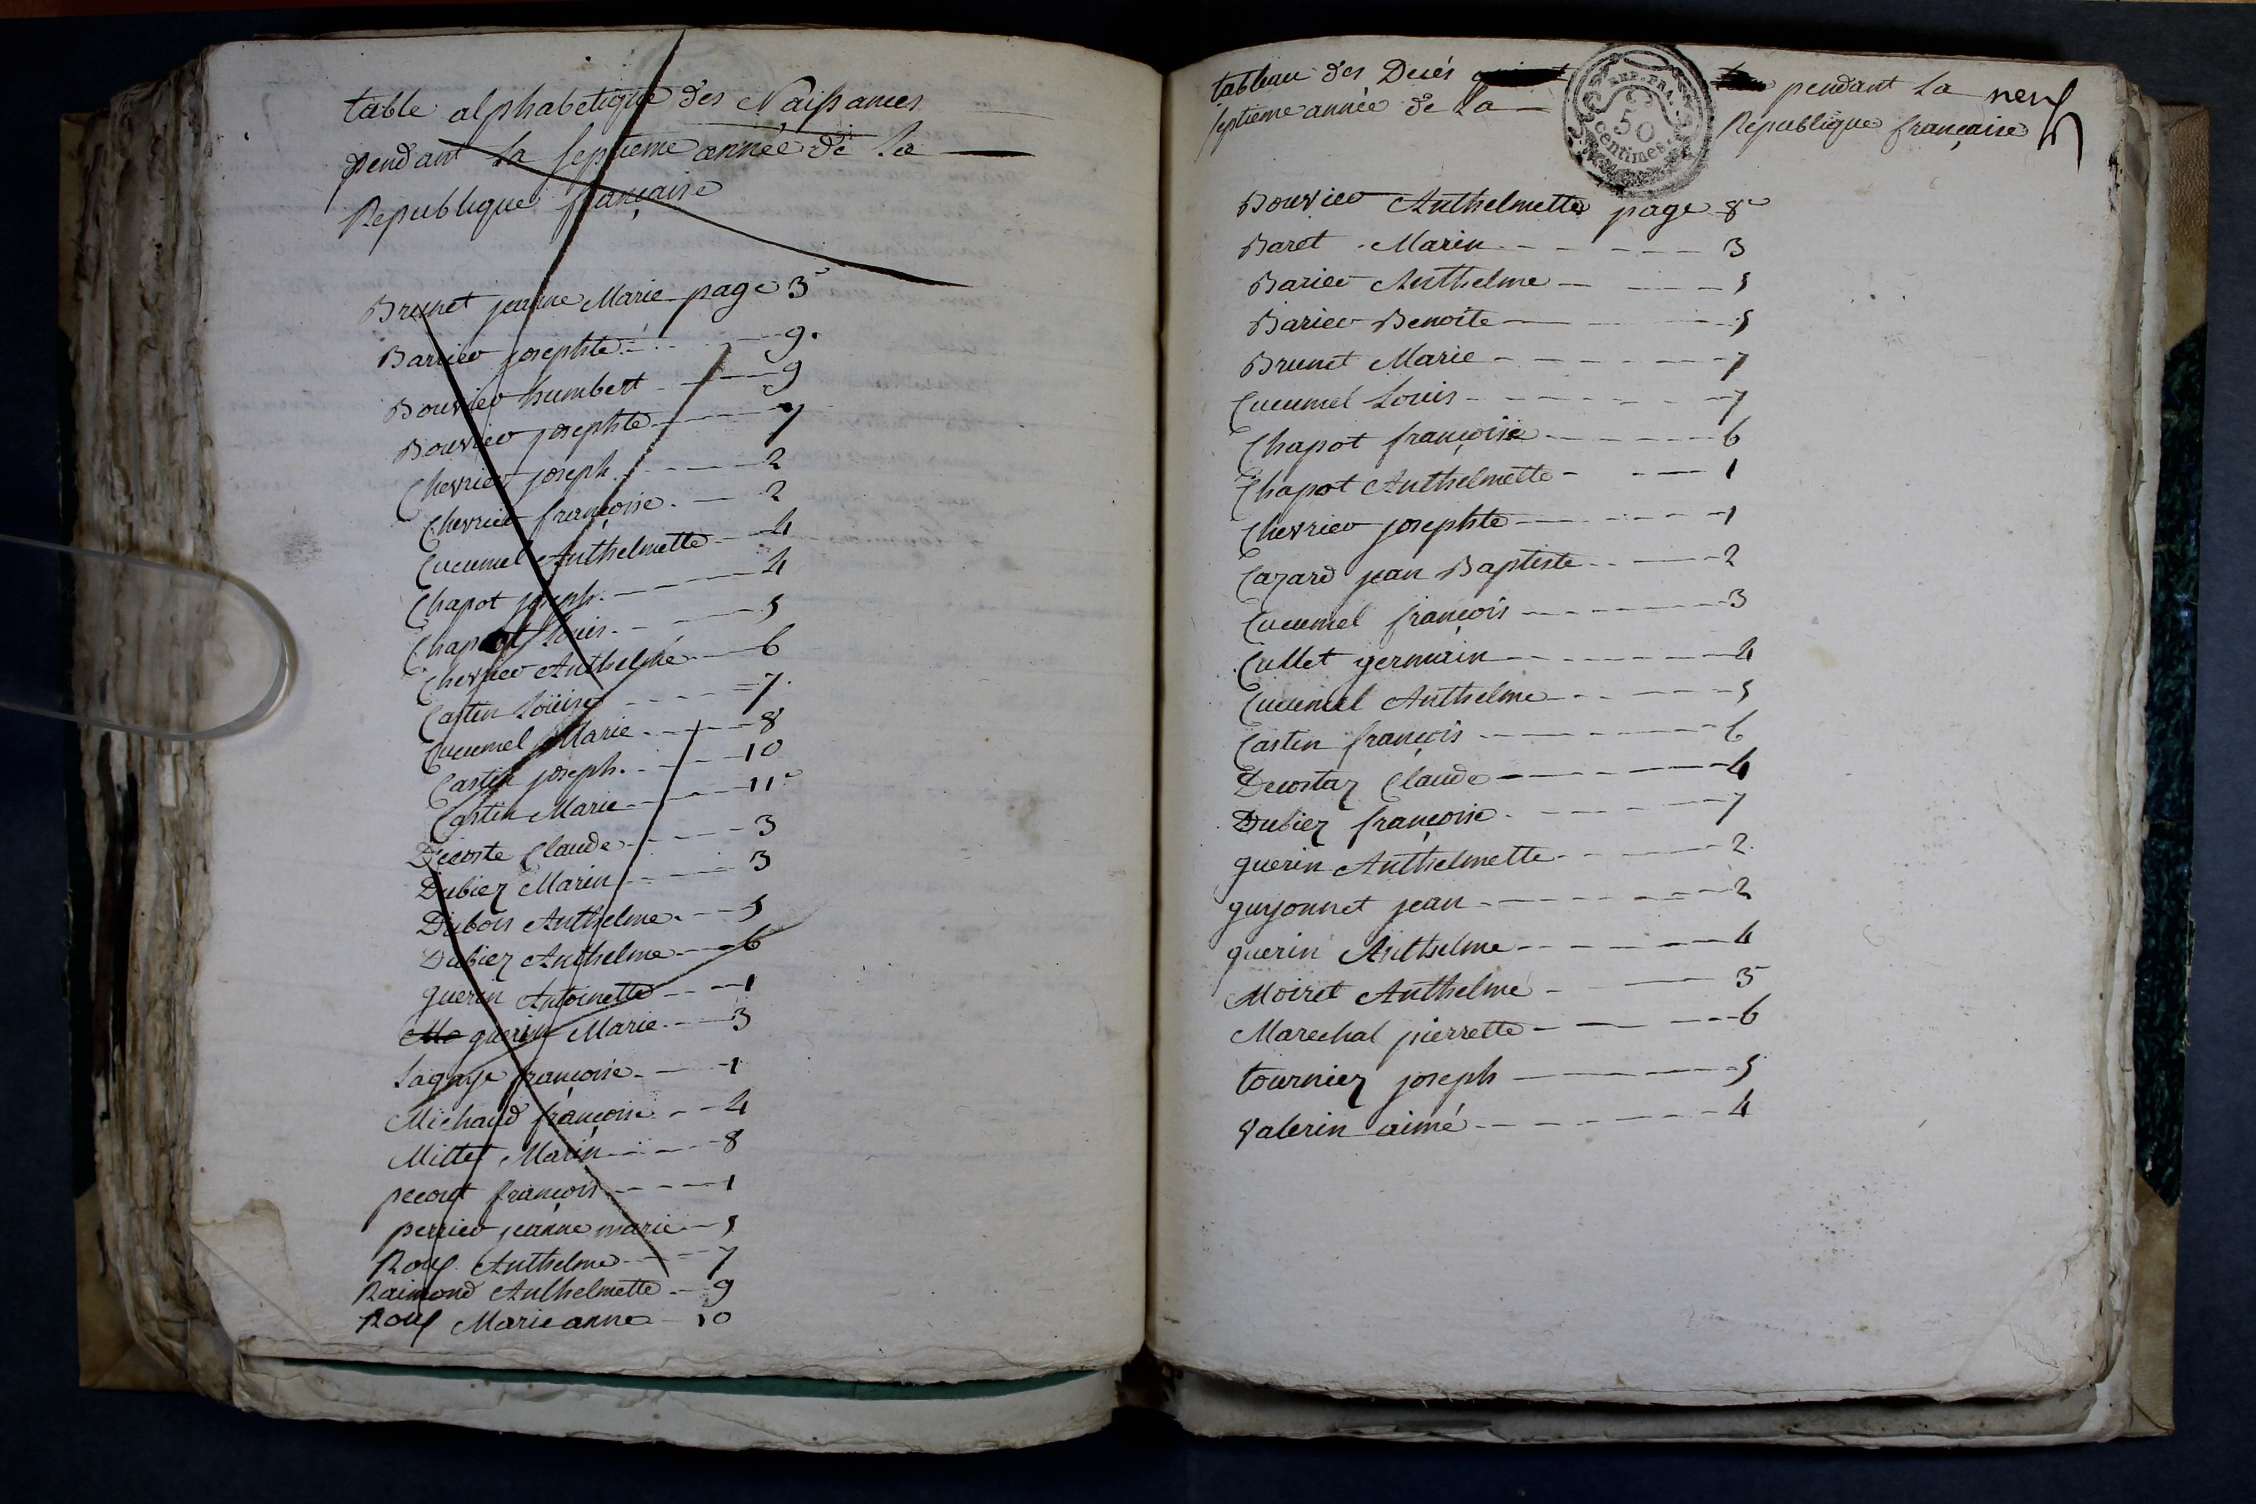 table alphabetique des Naissances
pendant la septieme année de la
Republique française
Brunet jeanne Marie page 3
Barrier josephte 9.
Bouvier humbert 9
Bouvier josephte 7
Chevrier joseph 2
Chevrier françoise 2
Cucumel Anthelmette 4
Chapot joseph 4
Chapot Louis 5
Chevrier Anthelme 6
Castin Loüise 7.
Cucumel Marie 8
Castin joseph 10
Castin Marie 11
Decoste Claude 3
Dubiez Marin 3
Dubois Anthelme 5
Dubiez Anthelme 6
guerin Antoinette 1
Ma guerin Marie 3
Lagaye françoise 1
Michaud françoise 4
Mittet Marin 8
pecout françois 1
perrier jeanne marie 5
Roux Anthelme 7
Raimond Anthelmette 9
Roux Marieanne 10
tableau des Decés pendant la neuf
septieme année de la Republique française
REP. FRA.
50
centimes.
Bouvier Anthelmette page 8
Baret Marin 3
Barier Anthelme 5
Barier Benoite 5
Brunet Marie 7
Cucumel Louis 7
Chapot françoise 6
Chapot Anthelmette 1
Chevrier josephte 1
Cazard jean Baptiste 2
Cucumel françois 3
Cullet germain 4
Cucumel Anthelme 5
Castin françois 6
Decostaz Claude 4
Dubiez françoise 7
guerin Anthelmette 2.
guyonnet jean 2
guerin Anthelme 4
Moiret Anthelme 3
Marechal pierrette 6
tourniez joseph 5
Valerin aimé 4